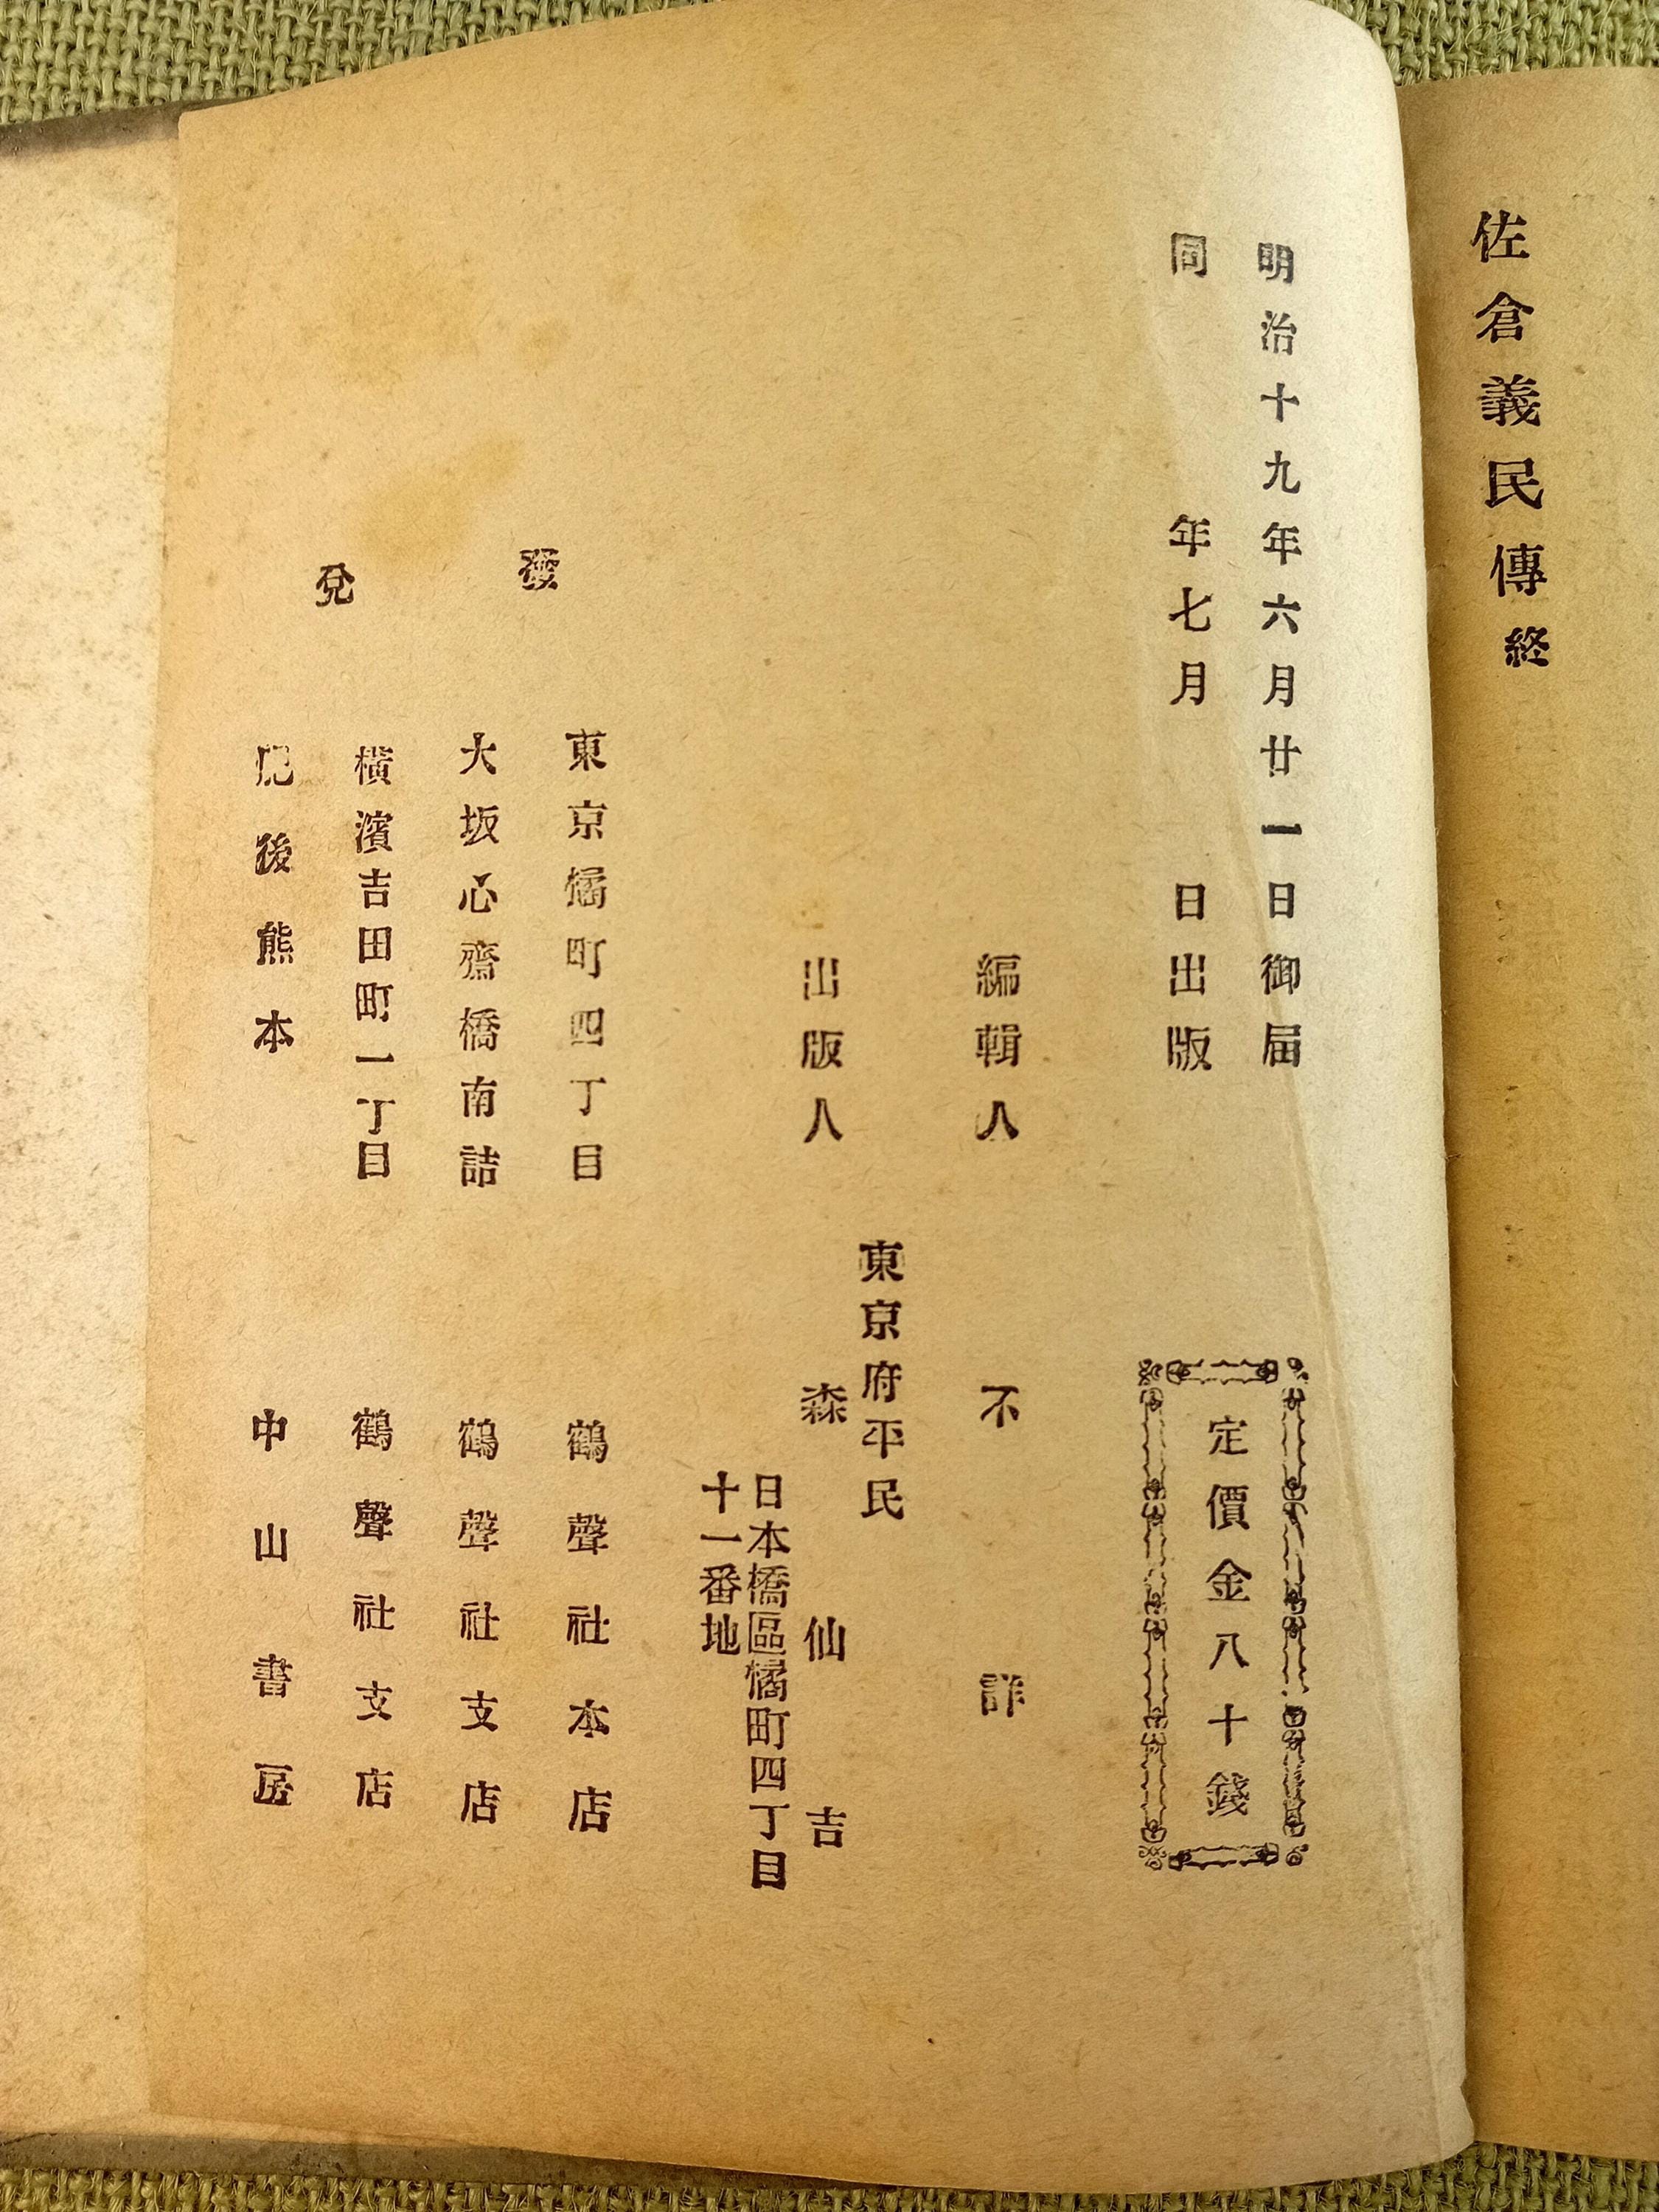 佐倉義民傳終
明治十九年六月廿一日御届
同年七月　日出版
定價金八十錢
編輯人　不詳
東京府平民
出版人　森仙吉
日本橋區橘町四丁目
十一番地
發兌
東京橘町四丁目　鶴聲社本店
大坂心齋橋南詰　鶴聲社支店
横濱吉田町一丁目　鶴聲社支店
肥後熊本　中山書房